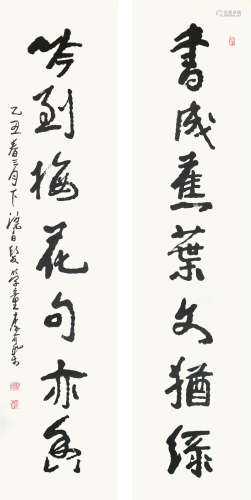 書成蕉葉文猶綠
吟到梅花句亦香
乙丑春三月下澣白髮學童